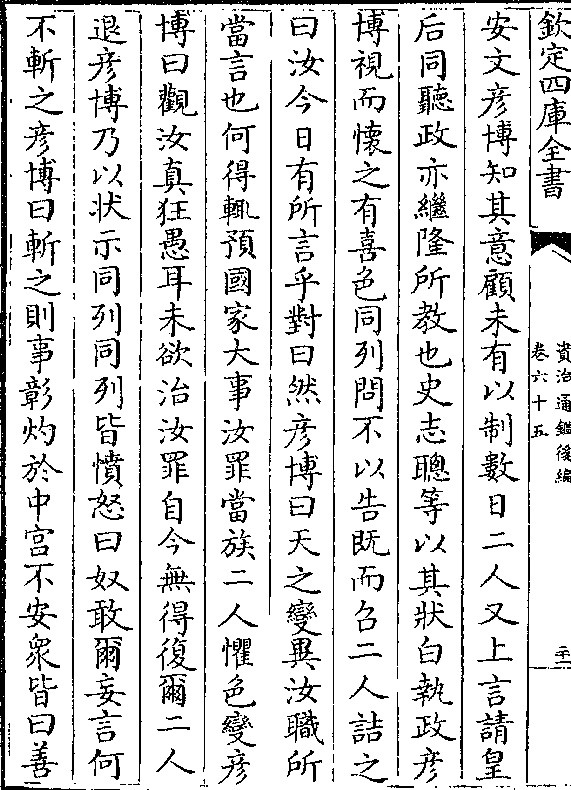 欽定四庫全書
資治通鑑後編
卷六十五
安文彦博知其意顧未有以制數日二人又上言請皇
后同聽政亦繼隆所教也史志聰等以其狀白執政彦
博視而懷之有喜色同列問不以告既而召二人詰之
曰汝今日有所言乎對曰然彦博曰天之變異汝職所
當言也何得輒預國家大事汝罪當族二人懼色變彦
博曰觀汝真狂愚耳未欲治汝罪自今無得復爾二人
退彦博乃以狀示同列同列皆憤怒曰奴敢爾妄言何
不斬之彦博曰斬之則事彰灼於中宫不安衆皆曰善